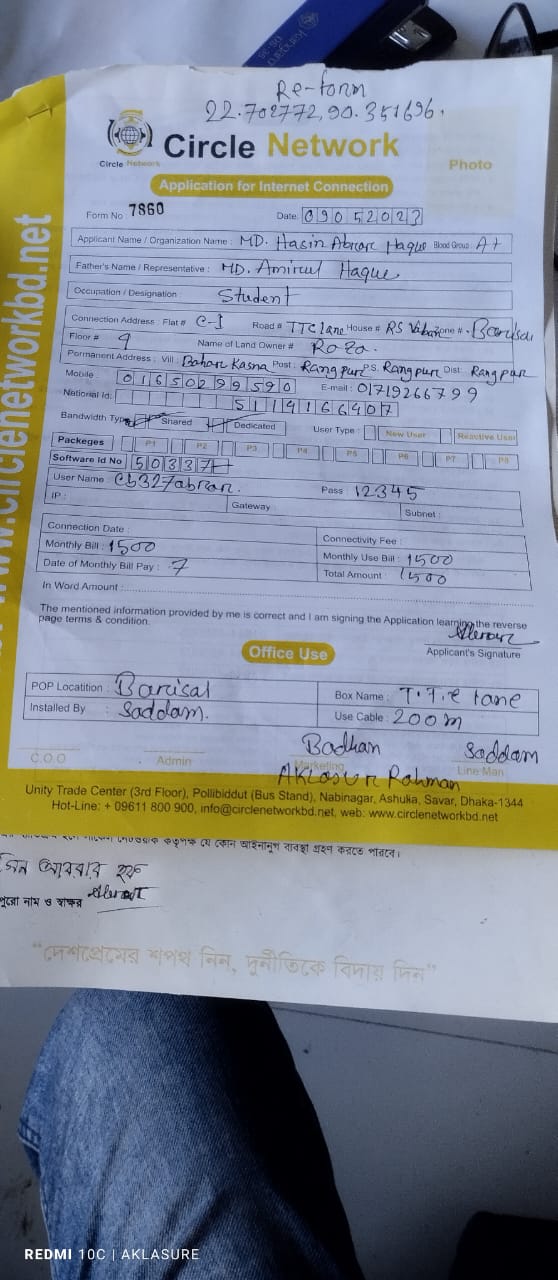 Re-form
22.702772,90.351696.
Circle Network
Circle Network
Photo
Application for Internet Connection
Form No 7860 Date: 09052023
Applicant Name / Organization Name : MD. Hasin Abrar Haque Blood Group A+
Father's Name / Representative : MD. Amirul Haque
Occupation / Designation Student
Connection Address : Flat # C-1 Road # TTC lane House # RS Zone #
Floor # 9 Name of Land Owner # Roza.
Permanent Address : Vill : Bahar Kasna Post : Rangpur P.S. Rangpur Dist: Rangpur
Mobile 01650299590 E-mail : 01719266799
National Id: 5119166407
Bandwidth Type Shared Dedicated User Type : New User Reactive User
Packeges P1 P2 P3 P4 P5 P6 P7 P8
Software Id No 50337
User Name : Pass : 12345
IP : Gateway Subnet :
Connection Date : Connectivity Fee :
Monthly Bill : 1500 Monthly Use Bill : 1500
Date of Monthly Bill Pay : 7 Total Amount : 1500
In Word Amount :
The mentioned information provided by me is correct and I am signing the Application learning the reverse
page terms & condition.
Applicant's Signature
Office Use
POP Locatition : Barisal Box Name : T.T.C lane
Installed By : Saddam. Use Cable : 200m
Badhan Saddam
C.O.O Admin Marketing Line Man
Aklasur Rahman
Unity Trade Center (3rd Floor), Pollibiddut (Bus Stand), Nabinagar, Ashulia, Savar, Dhaka-1344
Hot-Line: + 09611 800 900, info@circlenetworkbd.net, web: www.circlenetworkbd.net
www.circlenetworkbd.net
কর্তৃপক্ষ যে কোন আইনানুগ ব্যবস্থা গ্রহণ করতে পারবে।
আবরার হক
পুরো নাম ও স্বাক্ষর
"দেশপ্রেমের শপথ নিন, দুর্নীতিকে বিদায় দিন"
REDMI 10C | AKLASURE